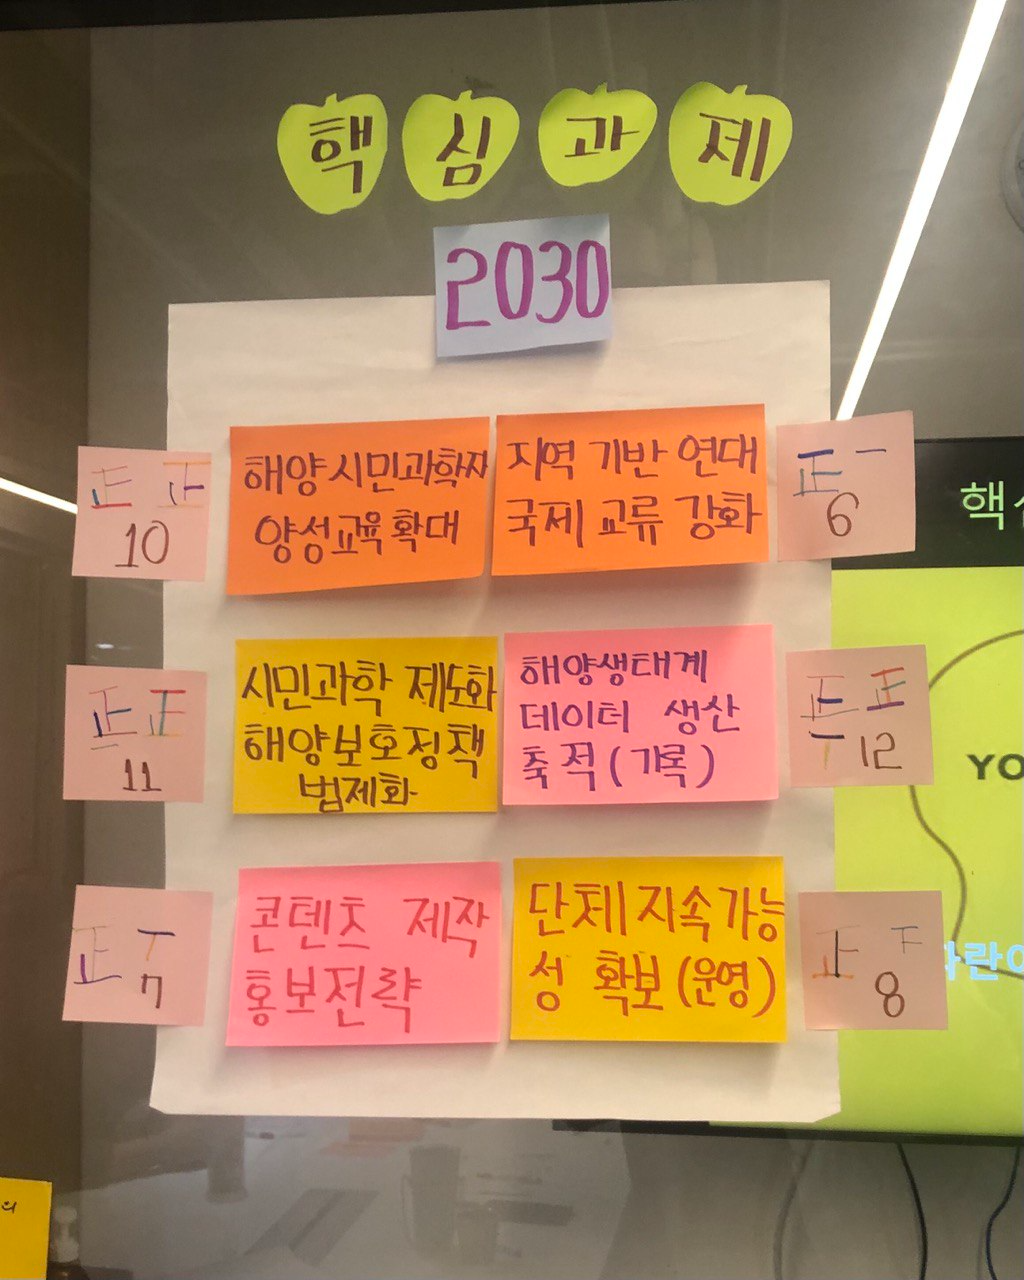 핵심과제
2030
正 正
10
해양시민과학자
양성교육확대
지역 기반 연대
국제 교류 강화
正 一
6
正 正
11
시민과학 제도화
해양보호정책
법제화
해양생태계
데이터 생산
축적(기록)
正 正
12
正 T
7
콘텐츠 제작
홍보전략
단체지속가능
성 확보(운영)
正 F
8
핵
YO
라란
의